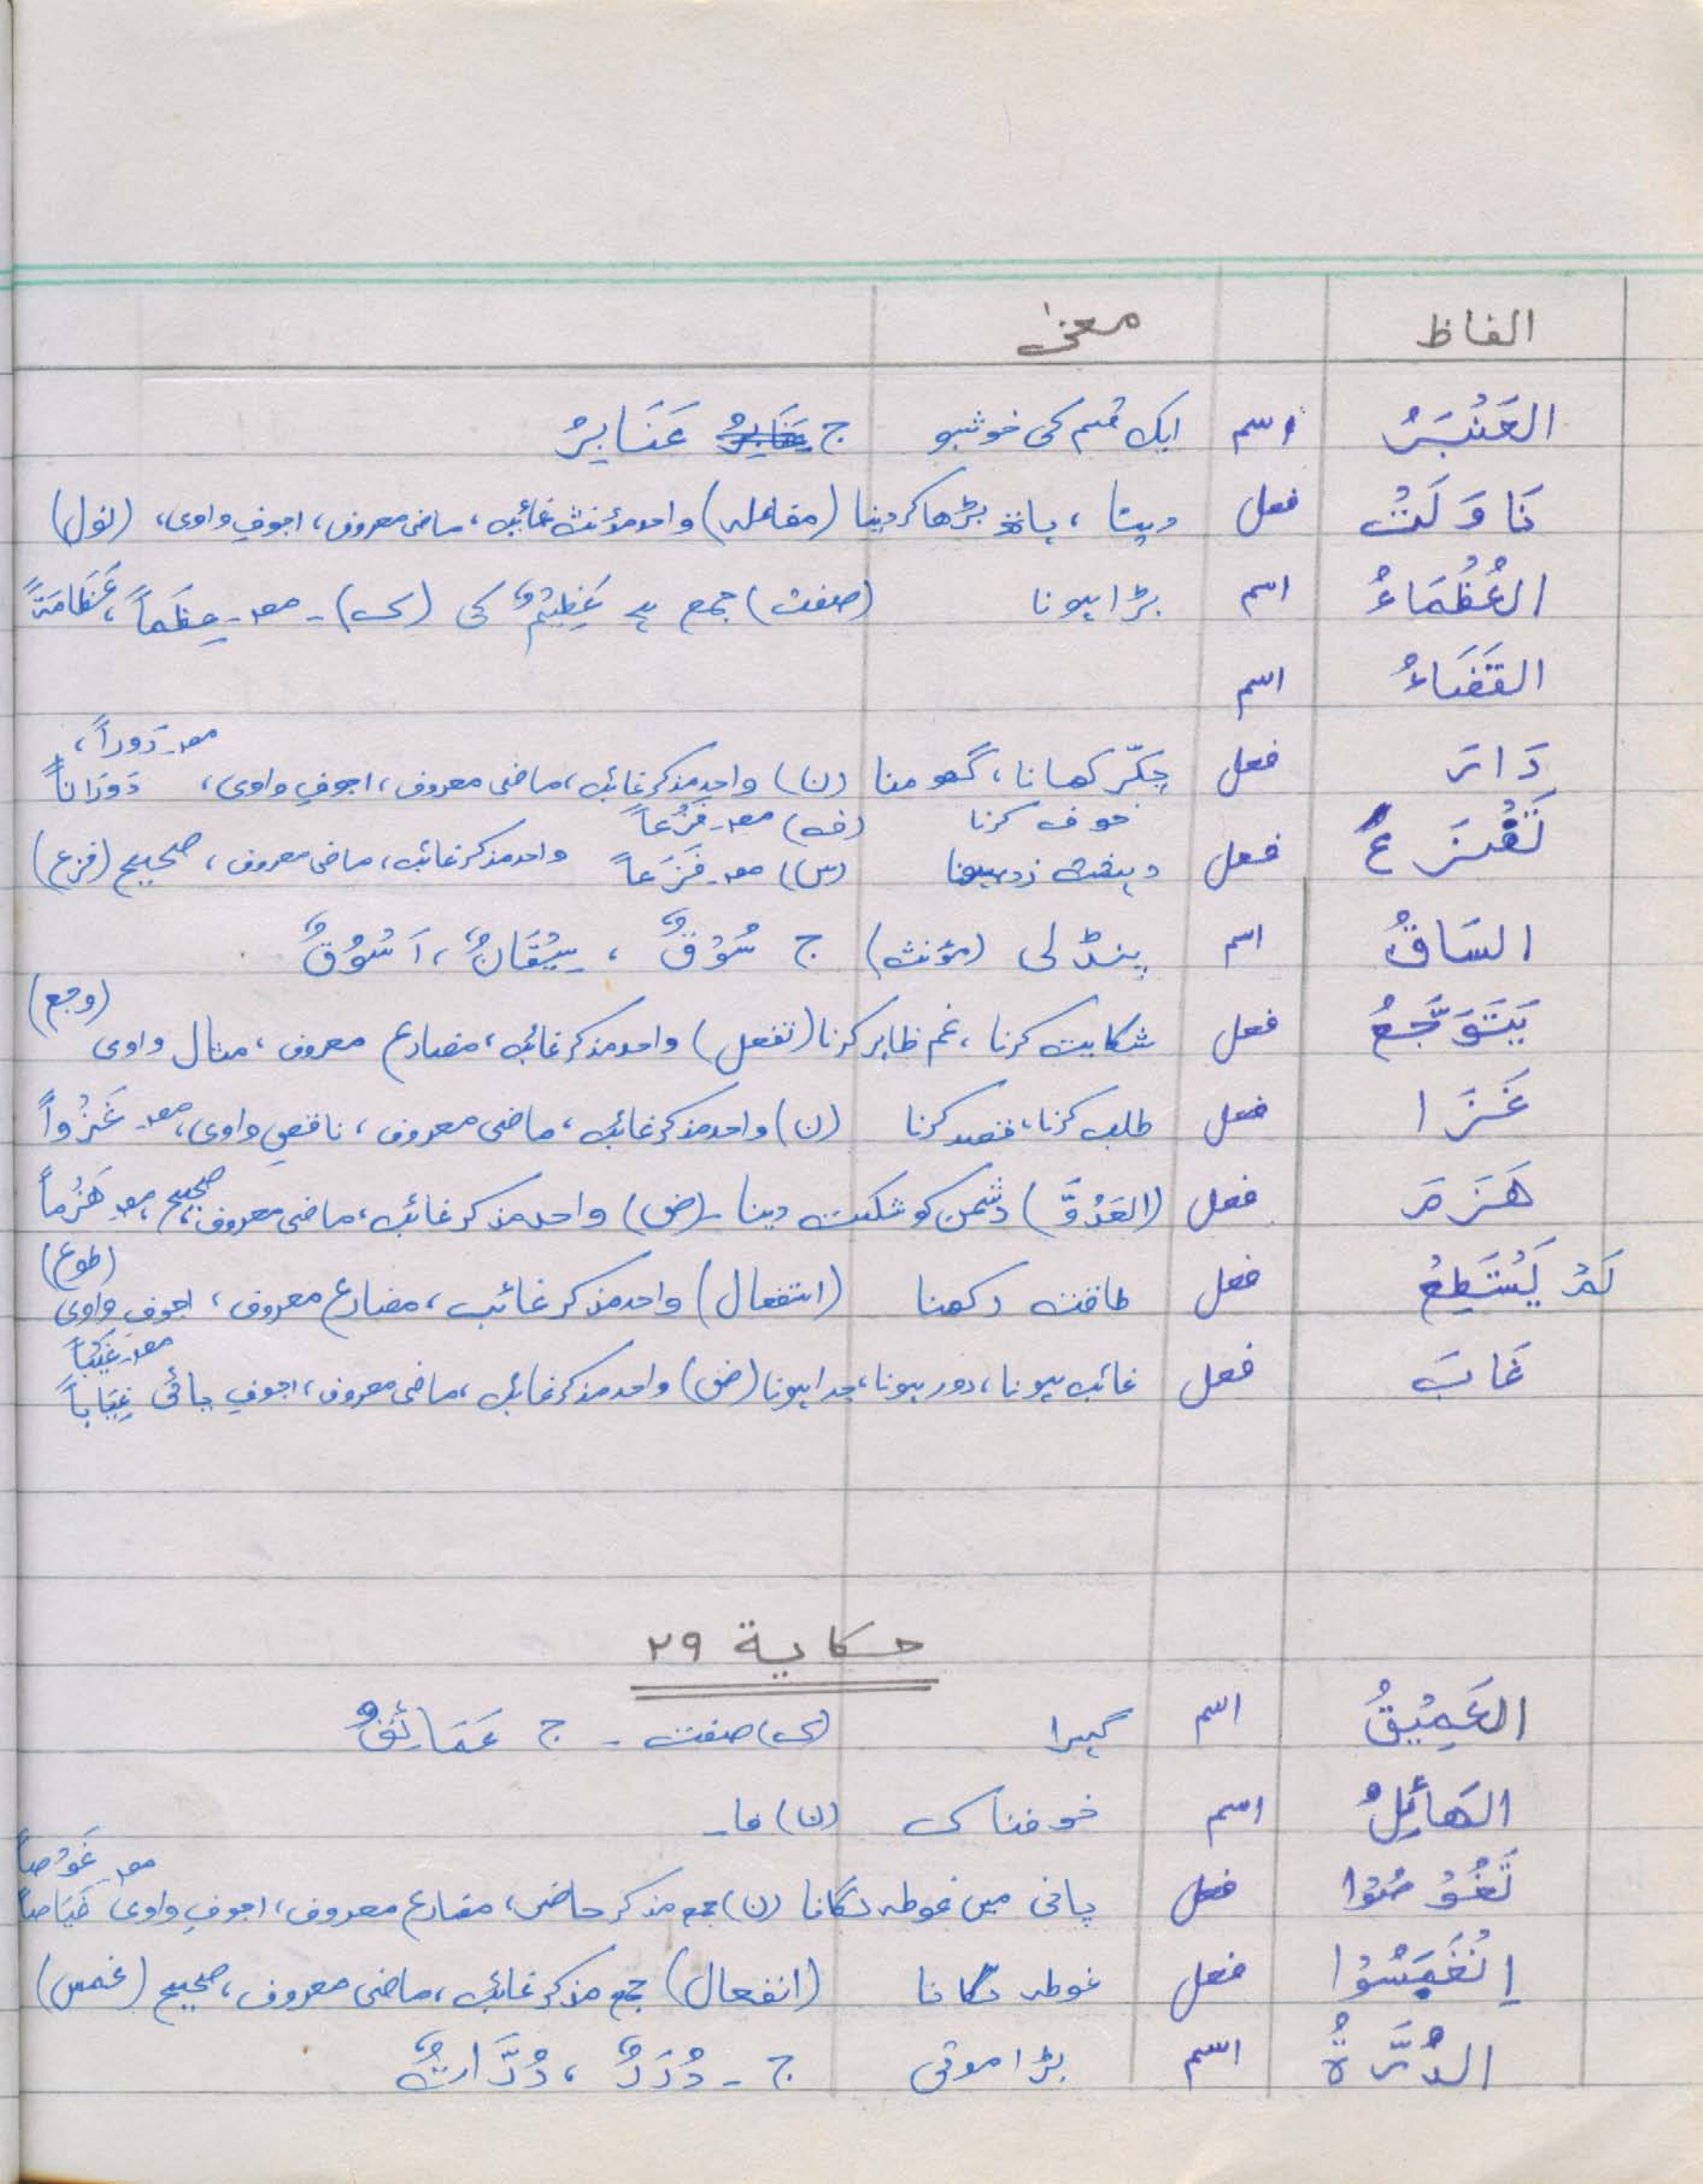 الفاظ معنیٰ
العَنْبَرُ اسم ایک قسم کی خوشبو ج عَنَابِرُ
نَاوَلَتْ فعل دینا ، ہاتھ بڑھا کر دینا (مفاعلہ) واحد مؤنث غائب ، ماضی معروف ، اجوفِ واوی ، (نول)
العُظَمَاءُ اسم بڑا ہونا (صفت) جمع ہے عَظِيْمٌ کی (ک) ۔ مصـ ۔ عِظَماً ، عَظَامَةً
القَفَاءُ اسم
مصـ ۔ دَوراً ،
دَارَ فعل چکّر کھانا ، گھومنا (ن) واحد مذکر غائب ، ماضی معروف ، اجوفِ واوی ، دَوَرَاناً
خوف کرنا (ف) مصـ ۔ فَزْعاً
تَفْزَعُ فعل دہشت زدہ ہونا (س) مصـ ۔ فَزَعاً واحد مذکر غائب ، ماضی معروف ، صحیح (فزع)
السَاقُ اسم پنڈلی (مؤنث) ج سُوْقٌ ، سِيْقَانٌ ، اَسْوُقٌ
(وجع)
يَتَوَجَّعُ فعل شکایت کرنا ، غم ظاہر کرنا (تفعل) واحد مذکر غائب ، مضارع معروف ، مثال واوی
غَزَا فعل طلب کرنا ، قصد کرنا (ن) واحد مذکر غائب ، ماضی معروف ، ناقصِ واوی ، مصـ ۔ غَزْواً
هَزَمَ فعل (العَدُوَّ) دشمن کو شکست دینا ۔ (ض) واحد مذکر غائب ، ماضی معروف ، صحیح ، مصـ ۔ هَزْماً
(طوع)
لَمْ يَسْتَطِعْ فعل طاقت رکھنا (استفعال) واحد مذکر غائب ، مضارع معروف ، اجوفِ واوی
مصـ ۔ غَيْباً
غَابَ فعل غائب ہونا ، دور ہونا ، جدا ہونا (ض) واحد مذکر غائب ، ماضی معروف ، اجوفِ یائی غِيَاباً
حكاية ٢٩
العَمِيْقُ اسم گہرا (ک) صفت ۔ ج عَمَائِقُ
الهَائِلُ اسم خوفناک (ن) فا ۔
مصـ ۔ غَوْصاً
تَغُوْصُوْا فعل پانی میں غوطہ لگانا (ن) جمع مذکر حاضر ، مضارع معروف ، اجوفِ واوی غِيَاصاً
اِنْغَمَسُوْا فعل غوطہ لگانا (انفعال) جمع مذکر غائب ، ماضی معروف ، صحیح (غمس)
الدُرَّةُ اسم بڑا موتی ج ۔ دُرَرٌ ، دُرَّاتٌ